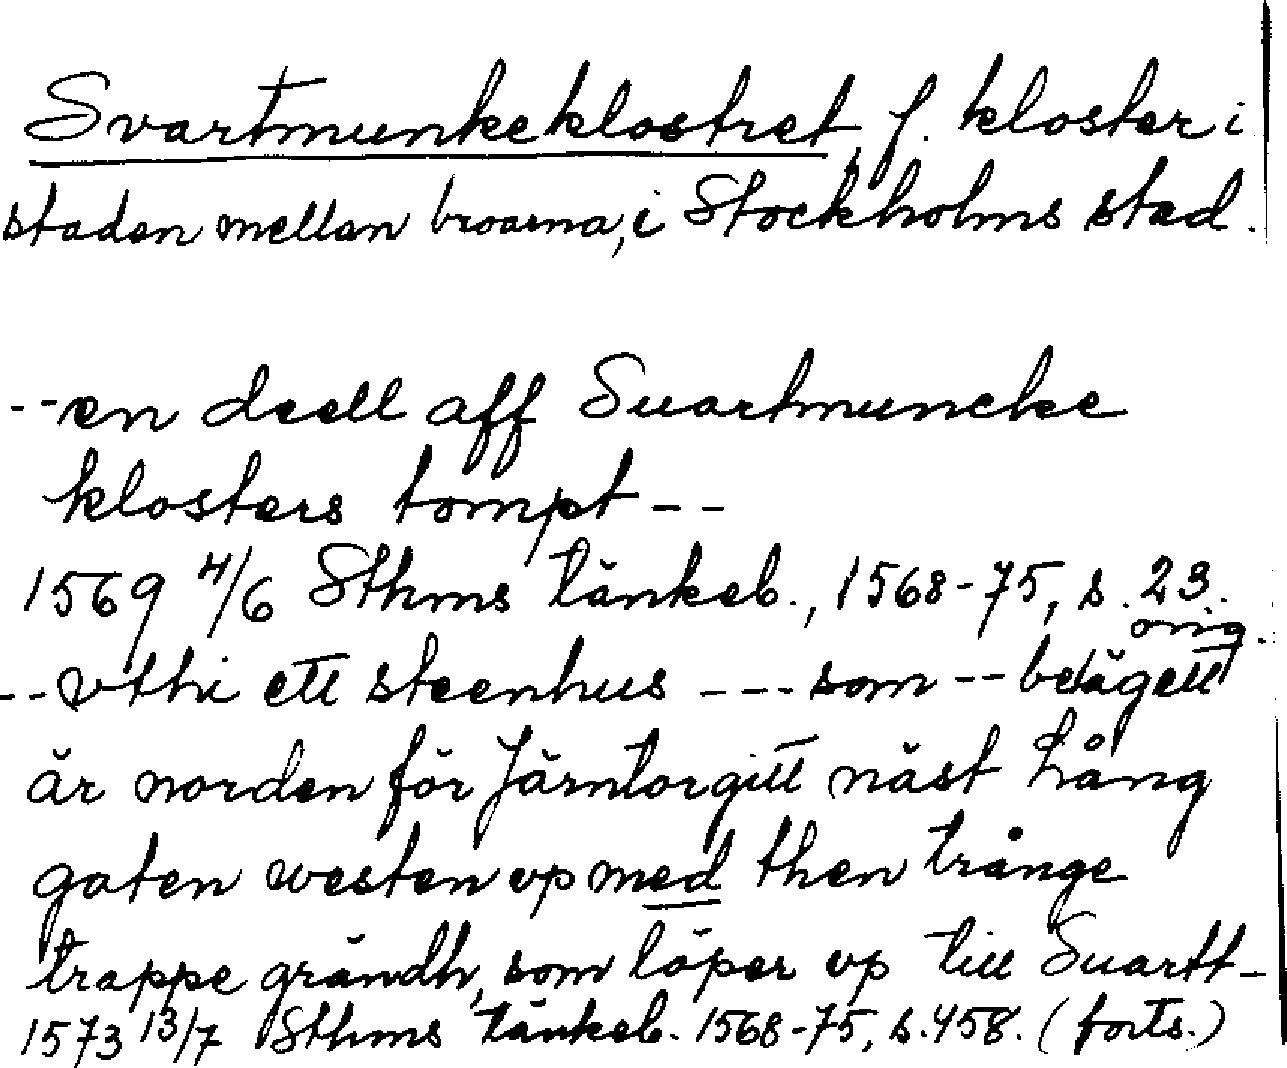 Svartmunkeklostret, f. kloster i
staden mellan broarna, i Stockholms stad.
--en deell aff Suartmuncke
klosters tompt--
1569 4/6 Sthms tänkeb., 1568-75, s. 23.
orig.
--vthi ett steenhus --- som -- belägett
är norden för Järntorgitt näst Lång
gaten westen vp med then trånge
trappe grändh, som löper vp till Suartt-
1573 13/7 Sthms tänkeb. 1568-75, s. 458. (forts.)